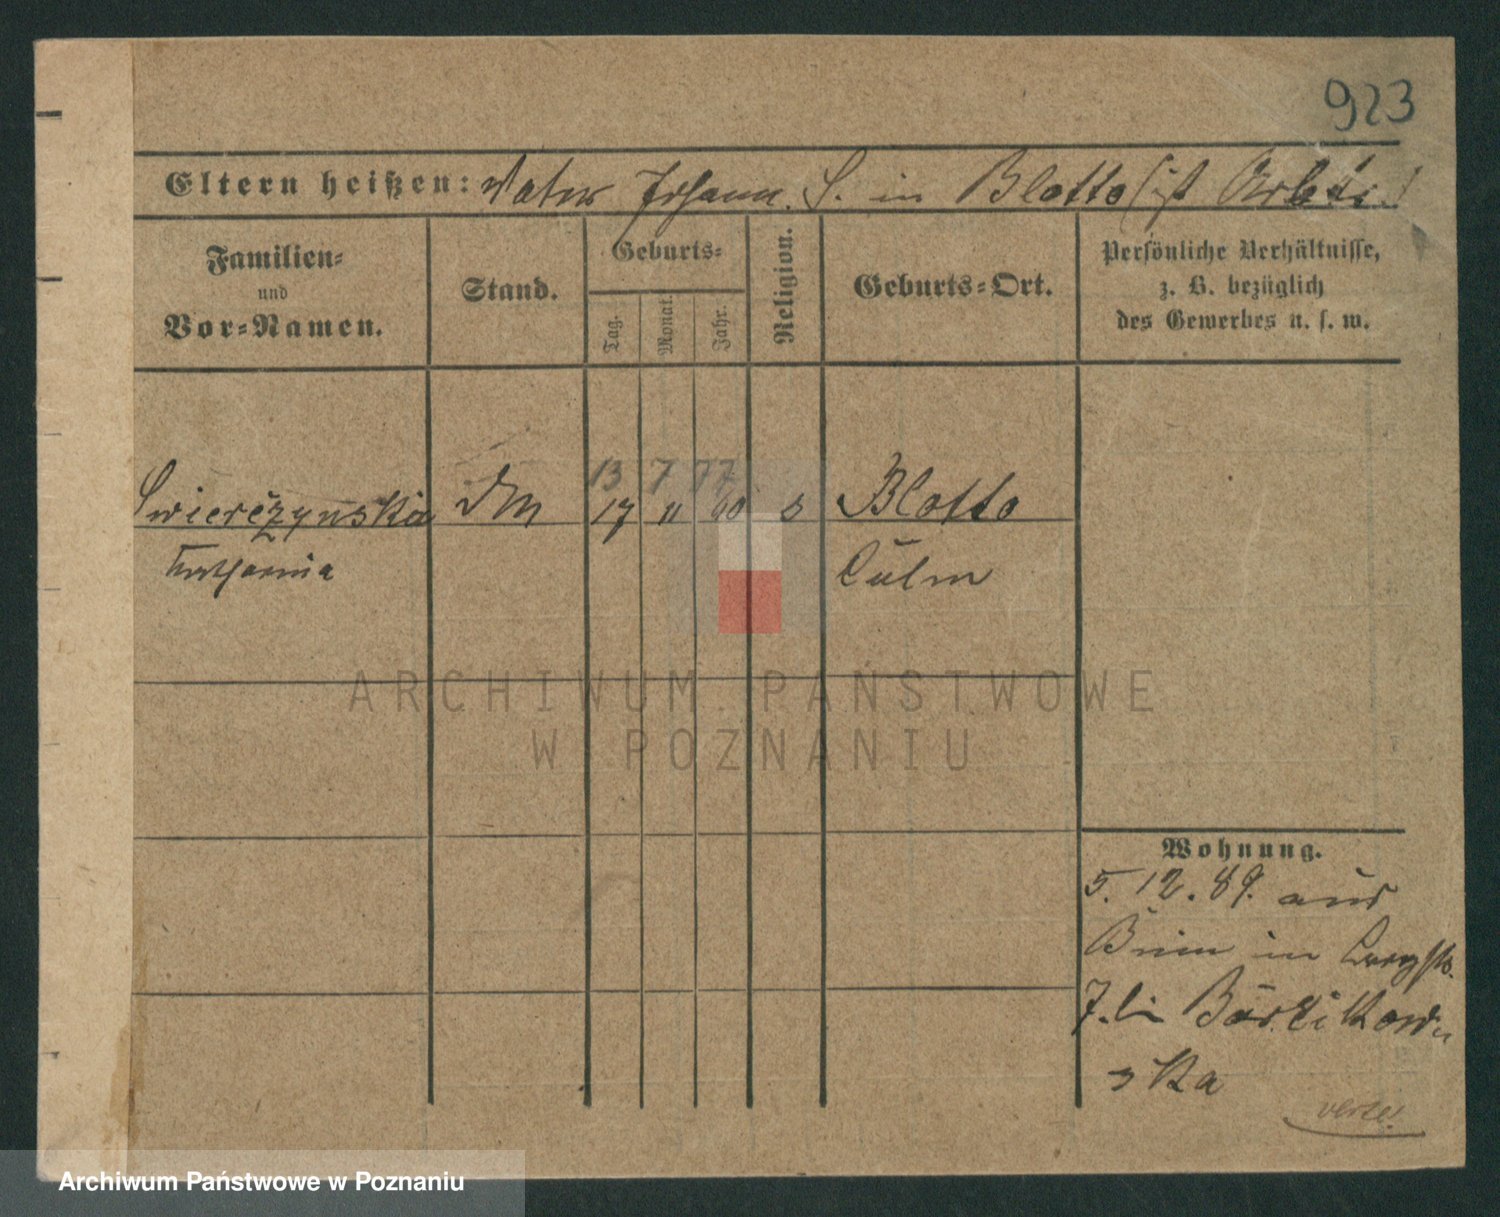 923
Eltern heißen: Vater Johann S. in Blotto (ist Arbeit.)
Familien-
und
Vor-Namen.
Stand.
Geburts-
Tag.
Monat.
Jahr.
Religion.
Geburts-Ort.
Persönliche Verhältnisse,
z. B. bezüglich
des Gewerbes u. s. w.
13 7 77
Swierczynska DM 17 11 60 Blotto
Katharina Culm
ARCHIWUM PAŃSTWOWE
W POZNANIU
Wohnung.
5. 12. 89. aus
in
7. bei
ska
verte!
Archiwum Państwowe w Poznaniu